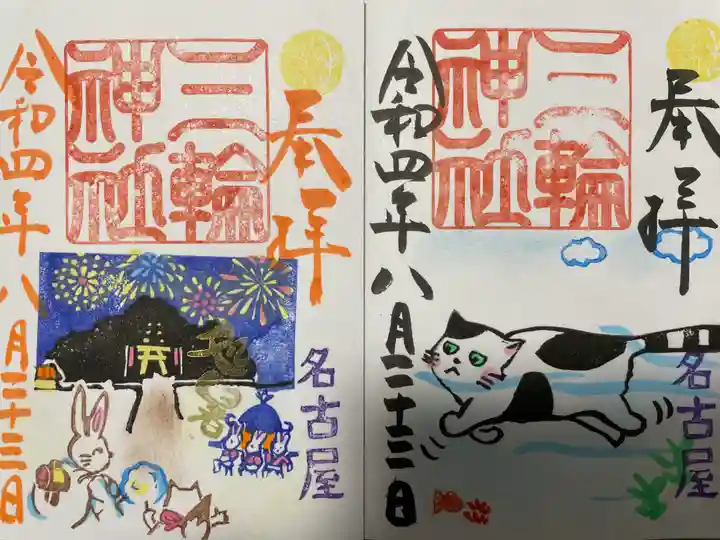 奉拝
三輪
神社
処暑
名古屋
令和四年八月二十三日
奉拝
三輪
神社
名古屋
令和四年八月二十二日